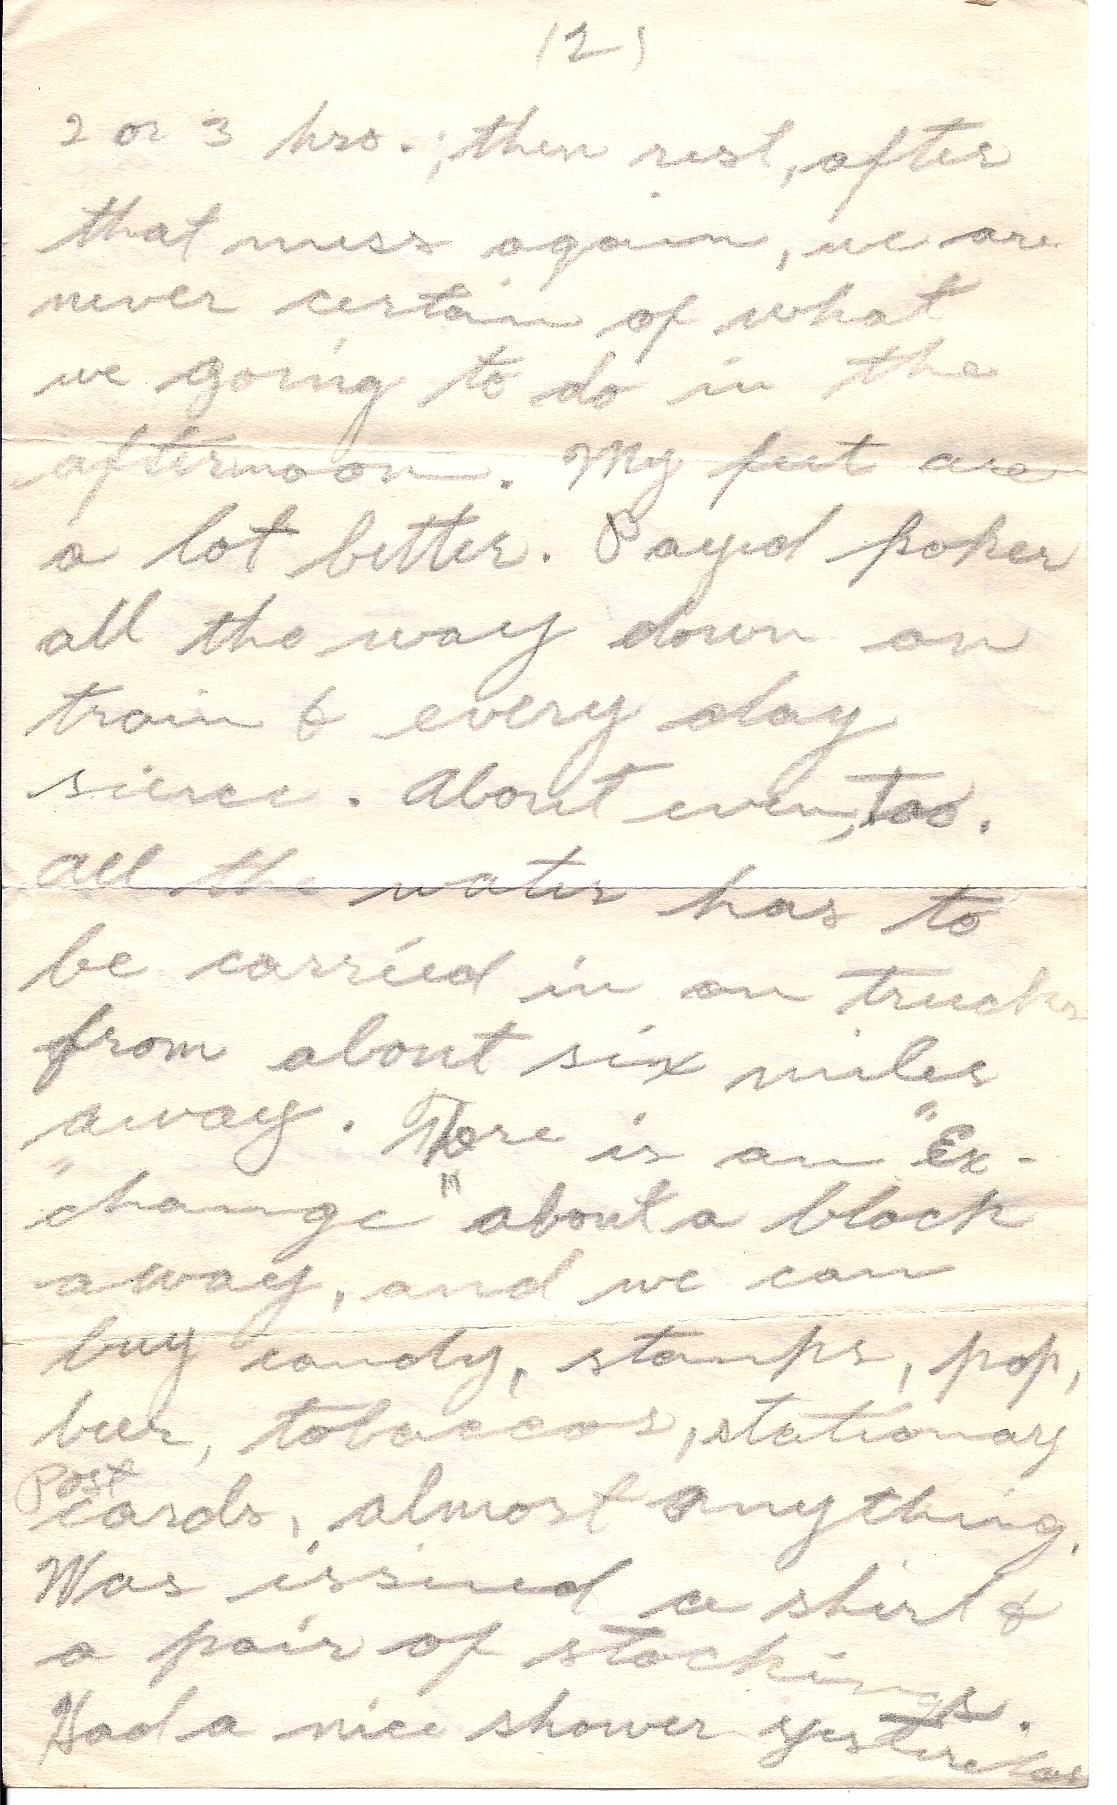 (2)
2 or 3 hrs.; then rest, after
that mess again, we are
never certain of what
we going to do in the
afternoon. My feet are
a lot better. Payed poker
all the way down on
train & every day
sience. About even, too.
All the water has to
be carried in on trucks
from about six miles
away. There is an "Ex-
"change" about a block
away, and we can
buy candy, stamps, pop,
beer, tobaccos, stationary
Post
cards, almost anything.
Was issued a shirt &
a pair of stockings.
Had a nice shower yesterday